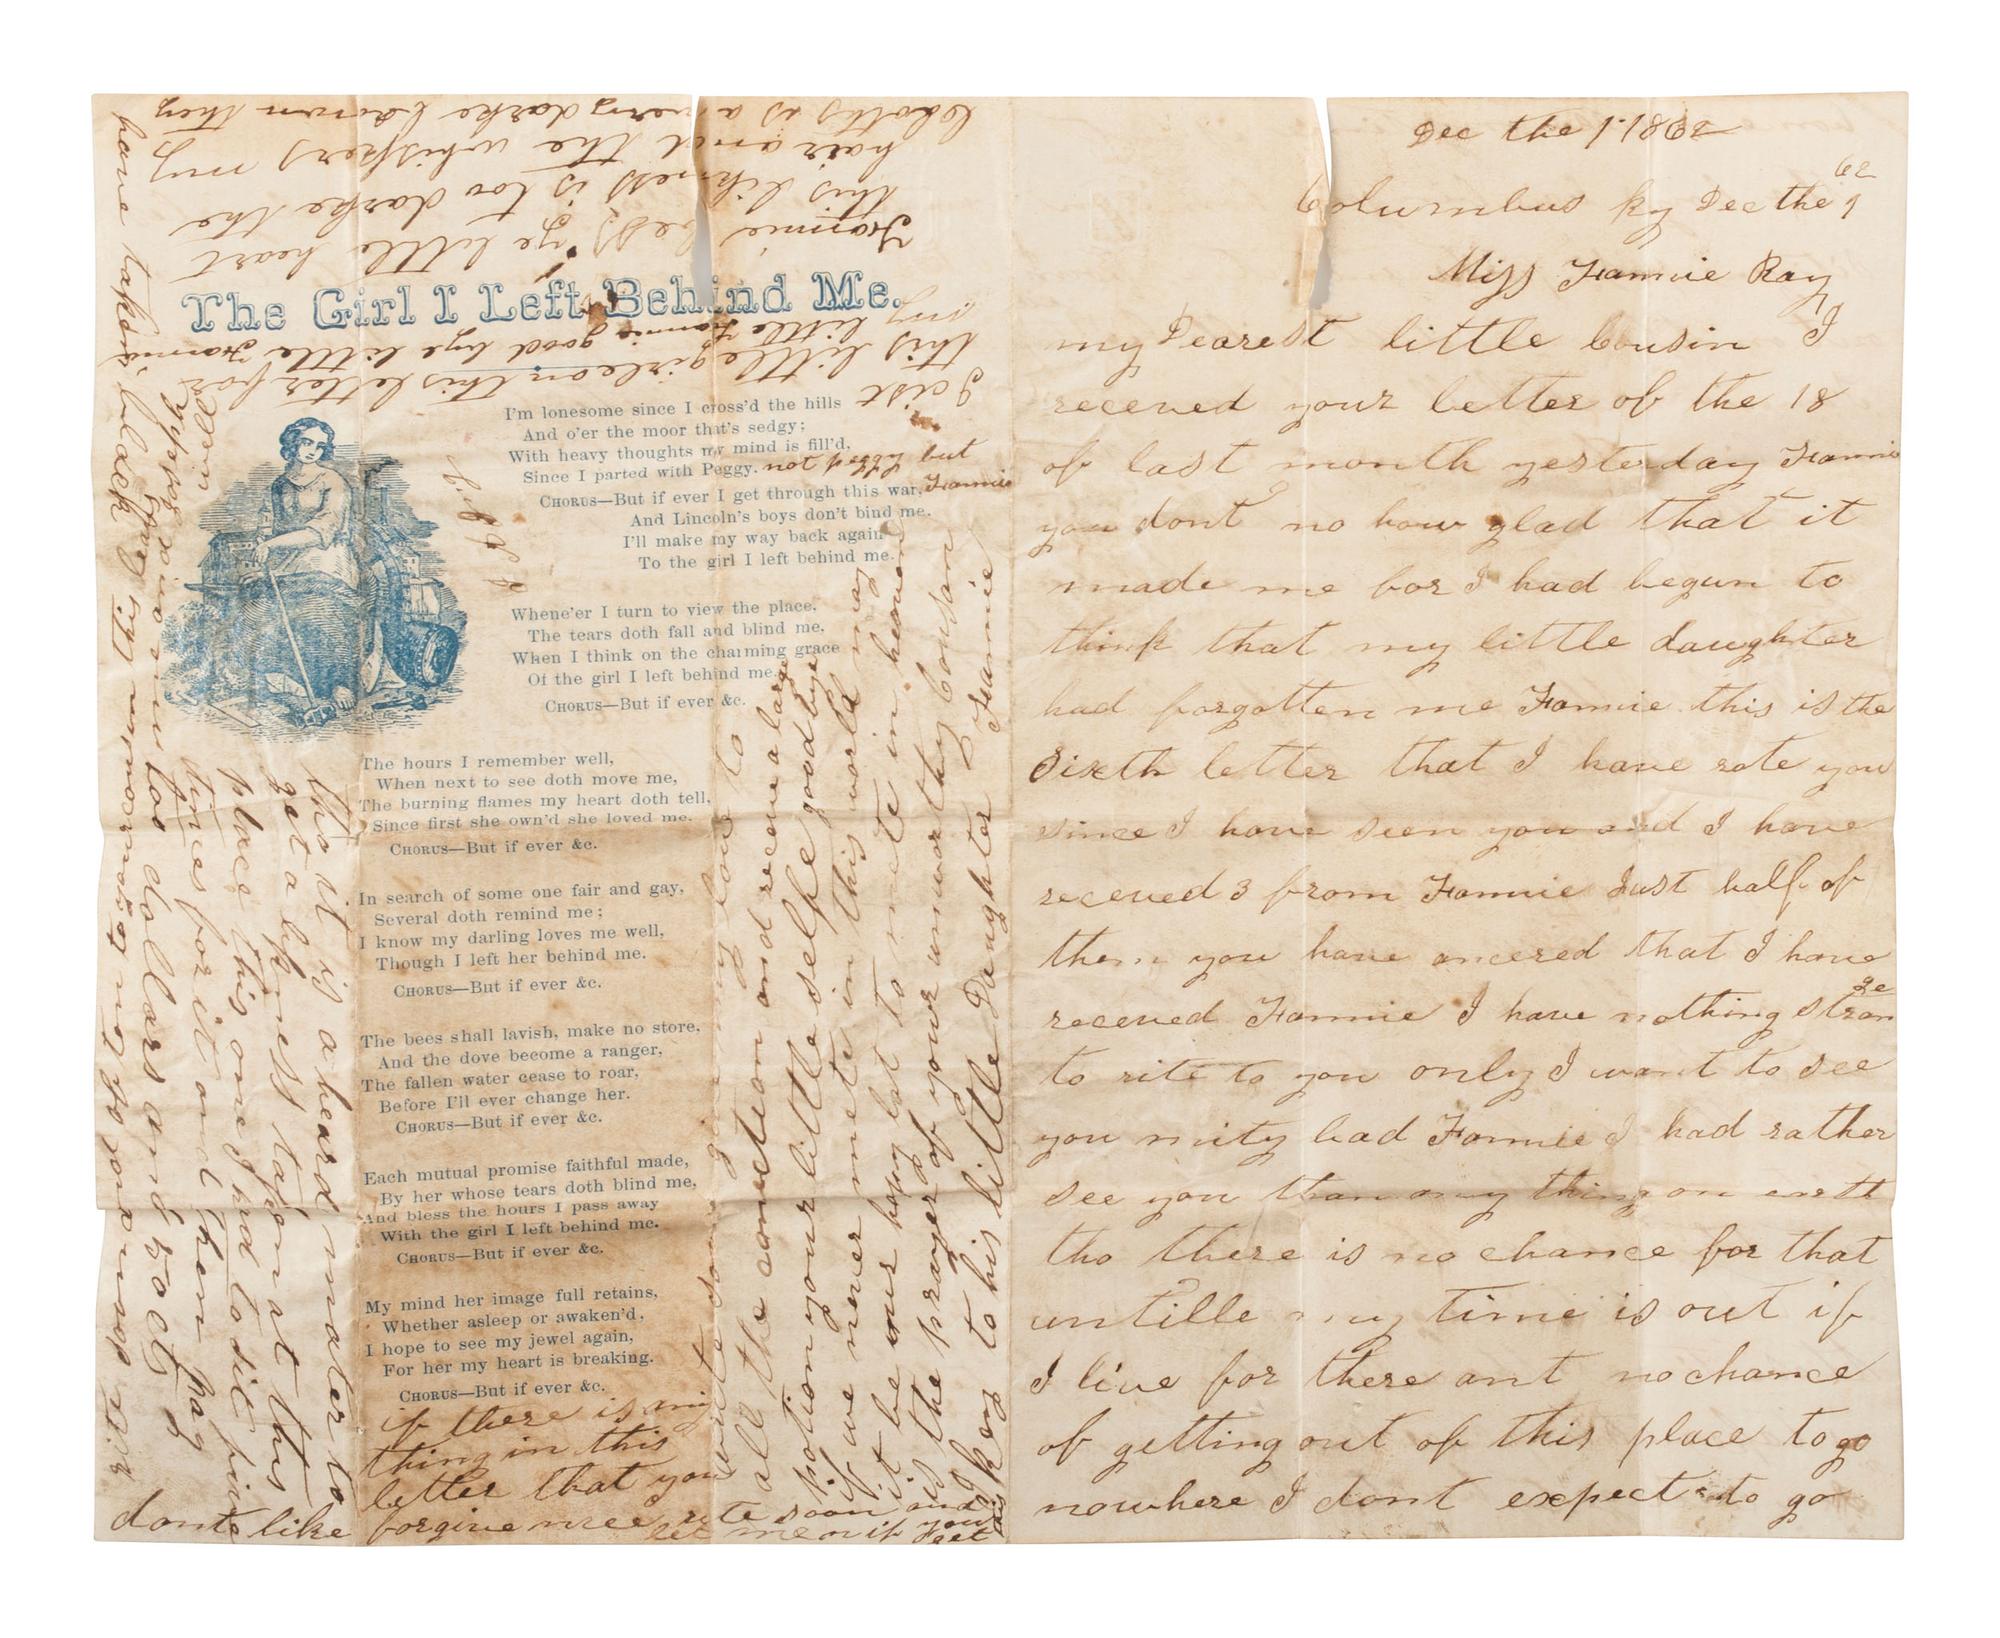 Dec the 1 1862
62
Columbus Ky Dec the 1
Miss Fannie Ray
my Dearest little Cousin I
receved your letter of the 18
of last month yesterday Fannie
you dont no how glad that it
made me for I had begun to
think that my little daughter
had forgotten me Fannie this is the
Sixth letter that I have rote you
since I have seen you and I have
receved 3 from Fannie Just half of
them you have ancered that I have
ge
receved Fannie I have nothing stran
to rite to you only I want to see
you mity bad Fannie I had rather
see you than any thing on earth
tho there is no chance for that
untille my time is out if
I live for there ant no chance
of getting out of this place to go
nowhere I dont expect to go
The Girl I Left Behind Me.
I'm lonesome since I cross'd the hills
And o'er the moor that's sedgy;
With heavy thoughts my mind is fill'd,
Since I parted with Peggy. not peggy but
Chorus—But if ever I get through this war, Fannie
And Lincoln's boys don't bind me.
I'll make my way back again
To the girl I left behind me.
Whene'er I turn to view the place,
The tears doth fall and blind me,
When I think on the charming grace
Of the girl I left behind me.
Chorus—But if ever &c.
The hours I remember well,
When next to see doth move me,
The burning flames my heart doth tell,
Since first she own'd she loved me.
Chorus—But if ever &c.
In search of some one fair and gay,
Several doth remind me;
I know my darling loves me well,
Though I left her behind me.
Chorus—But if ever &c.
The bees shall lavish, make no store,
And the dove become a ranger,
The fallen water cease to roar,
Before I'll ever change her.
Chorus—But if ever &c.
Each mutual promise faithful made,
By her whose tears doth blind me,
And bless the hours I pass away
With the girl I left behind me.
Chorus—But if ever &c.
My mind her image full retains,
Whether asleep or awaken'd,
I hope to see my jewel again,
For her my heart is breaking.
Chorus—But if ever &c.
if there is any
thing in this
letter that you
dont like forgive mee rite soon and
let me no if you get this
give my love to
all the conection and receve a large
potion your little selfe good bye
if we never mete in this world may
it be our happy lot to mete in heven
is the prayer of your unworthy Cousan
J K Ray to his little Daughter Fannie
tho it is a heard mater to
get a likness taken at this
place this one I had to sit five
times for it and then pay
two dollars and 50 cts
Fannie bless ye little heart
this likness is too darke the
hair and the whiskers my
Cloths is a very darke brown they
have taken black
I cist this little girle on this letter for
my little Fannie good bye little Fannie